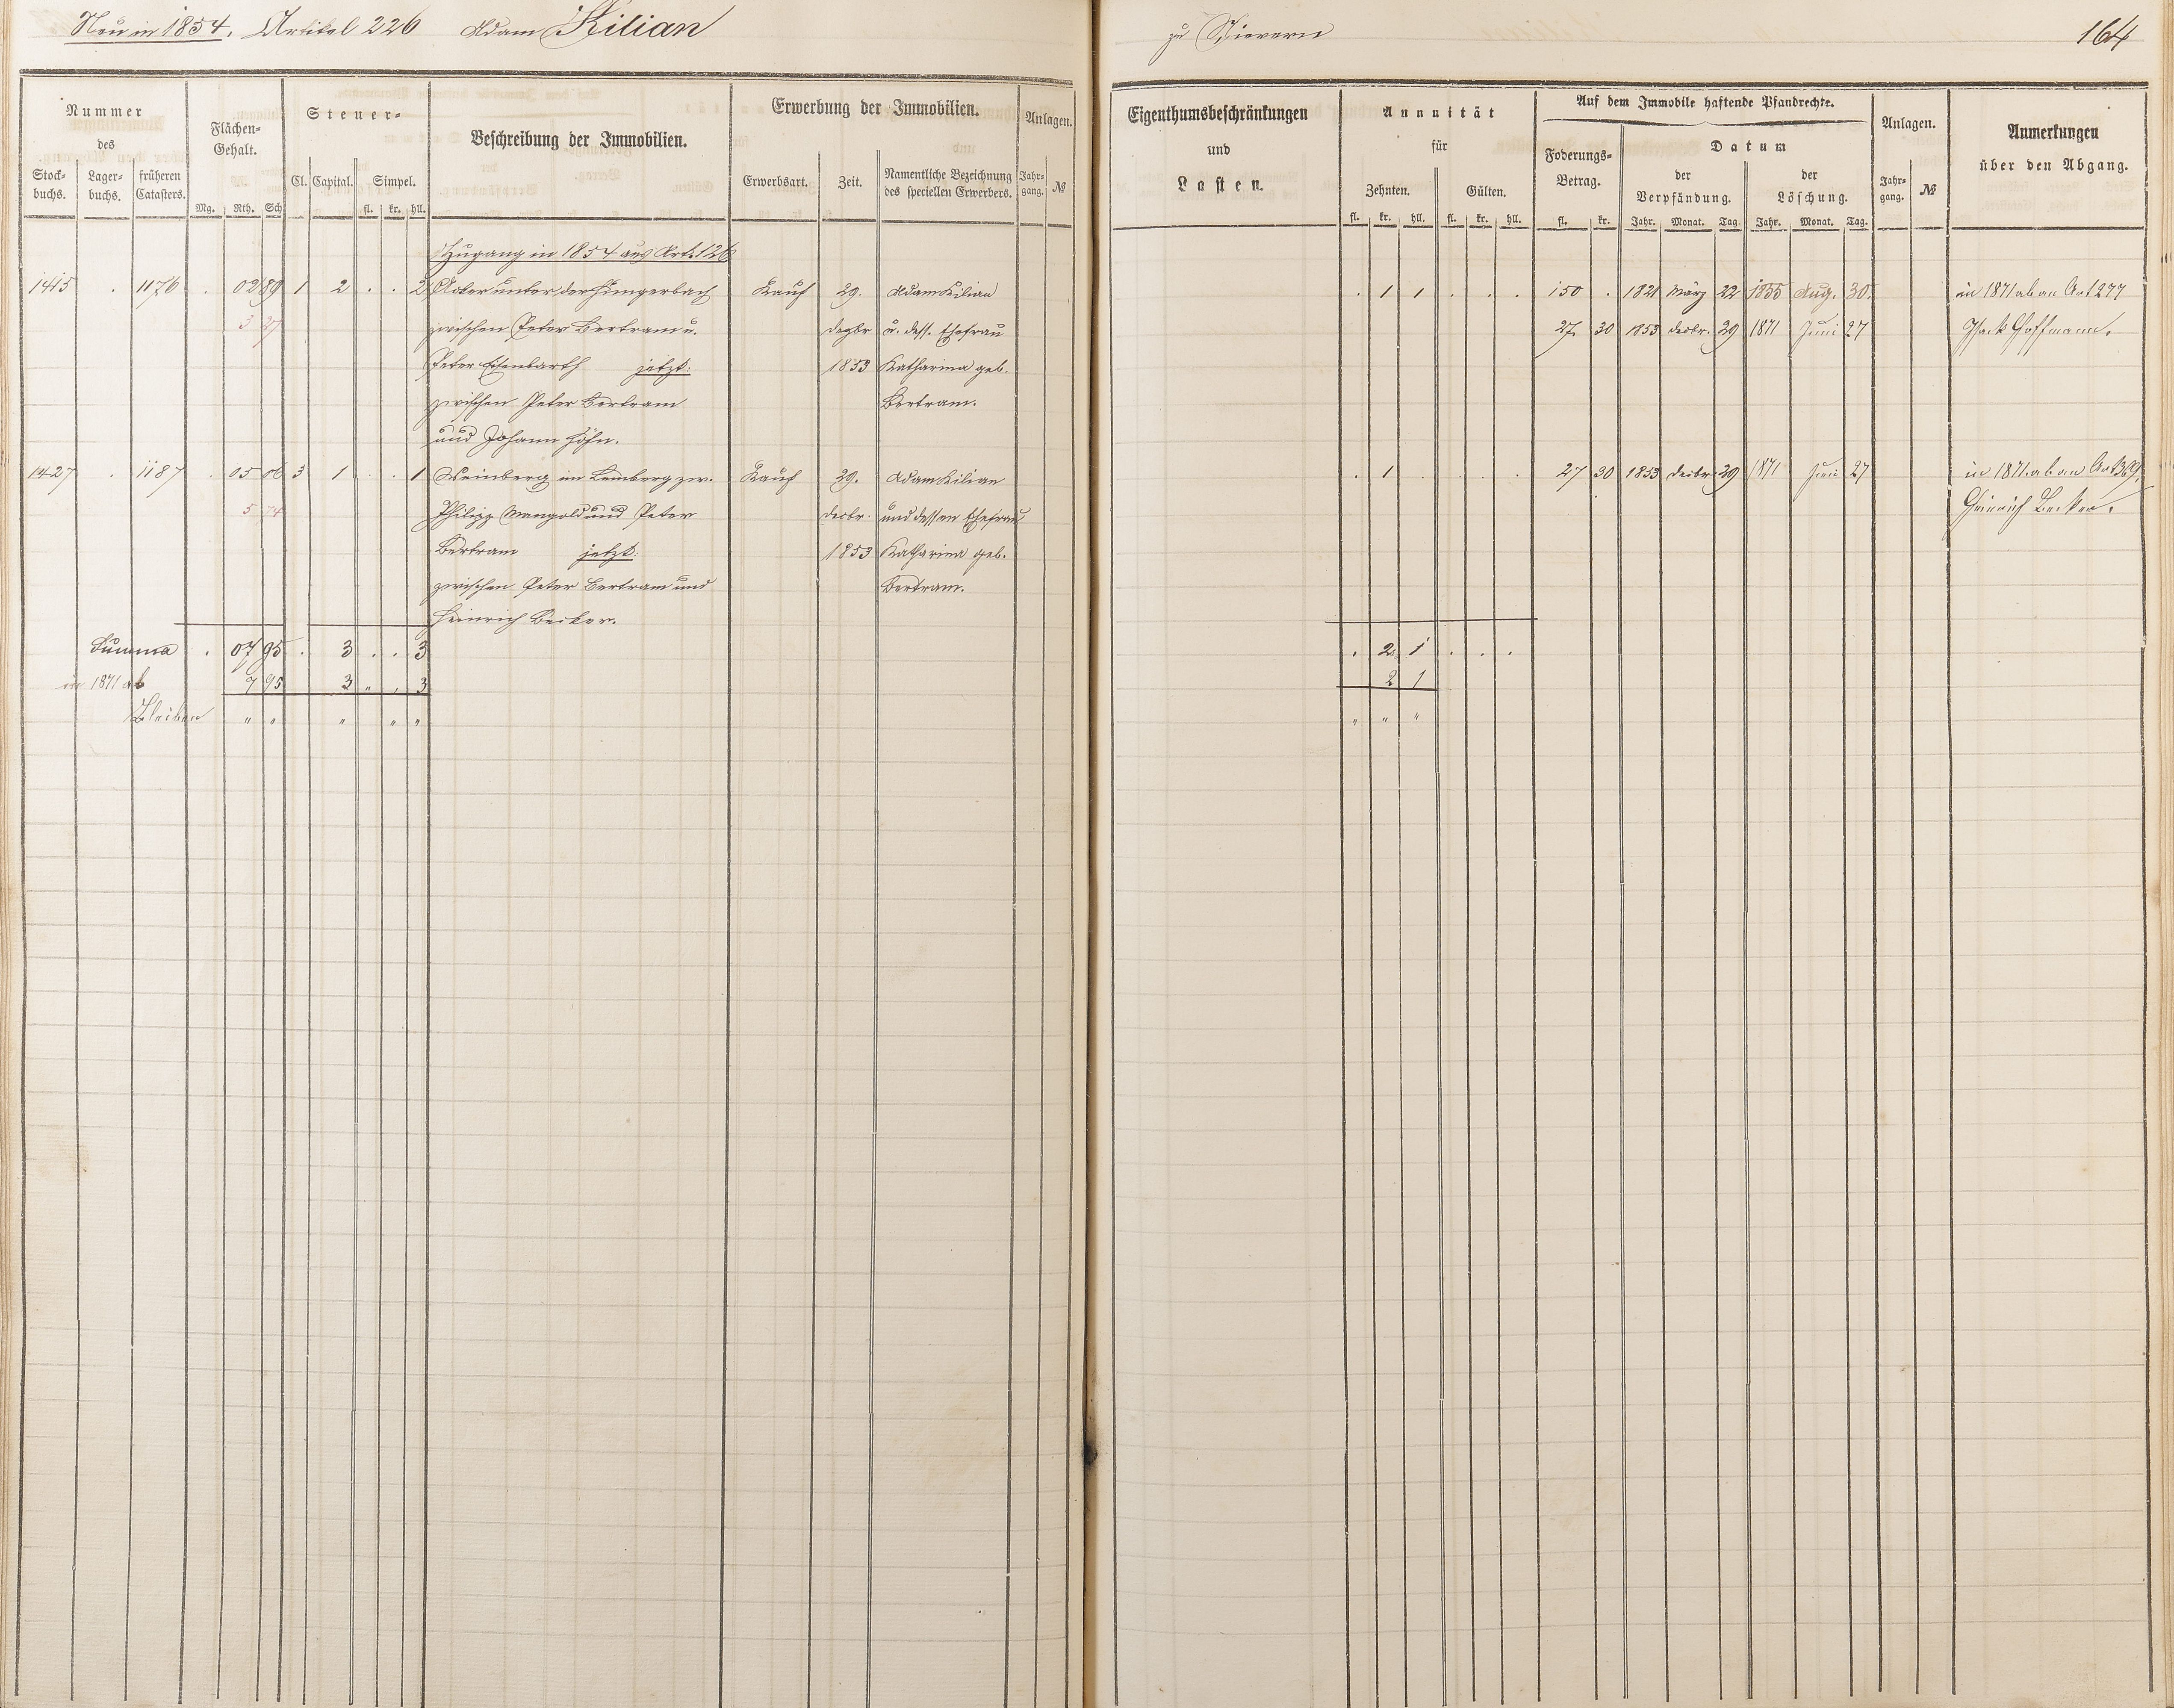 Neu in 1854. Artikel 226 Adam Kilian
zu Fievern 164
Nummer
des
Stock-
buchs.
Lager-
buchs.
früheren
Catasters.
Flächen-
Gehalt.
Mg. Rth. Sch
Steuer-
Cl. Capital. Simpel.
fl. kr. hll.
Beschreibung der Immobilien.
Erwerbung der Immobilien.
Erwerbsart. Zeit.
Namentliche Bezeichnung
des speciellen Erwerbers.
Anlagen.
Jahr-
gang.
№
Eigenthumsbeschränkungen
und
Lasten.
Annuität
für
Zehnten. Gülten.
fl. kr. hll. fl. kr. hll.
Auf dem Immobile haftende Pfandrechte.
Foderungs-
Betrag.
fl. kr.
Datum
der
Verpfändung.
Jahr. Monat. Tag.
der
Löschung.
Jahr. Monat. Tag.
Anlagen.
Jahr-
gang.
№
Anmerkungen
über den Abgang.
Zugang in 1854 aus Art. 126
1415 . 1176 . 02 89 1 2 . . 2 Acker unter der Hüngerbach Kauf 29. Adam Kilian . 1 1 . . . 150 . 1821 März 22 1855 Aug. 30. in 1871 ab an Art 277
3 27 zwischen Peter Bertram u. Dezbr u. dess. Ehefrau 27 30 1853 Decbr. 29 1871 Juni 27 Isack Hoffmann.
Peter Eisenbarth jetzt: 1853 Katharina geb.
zwischen Peter Bertram Bertram.
und Johann Höhn.
1427 . 1187 . 05 06 3 1 . . 1 Weinberg im Lemberg zw. Kauf 29. Adam Kilian . 1 . . . . 27 30 1853 Decbr 29 1871 Juni 27 in 1871 ab an Art 369.
5 74 Philipp Mengold und Peter Decbr. und dessen Ehefrau Heinrich Becker.
Bertram jetzt: 1853 Katharina geb.
zwischen Peter Bertram und Bertram.
Heinrich Becker.
Summa . 07 95 . 3 . . 3 . 2 1 . . .
in 1871 ab 7 95 3 " , 3 2 1
Bleiben " " " " " " " "